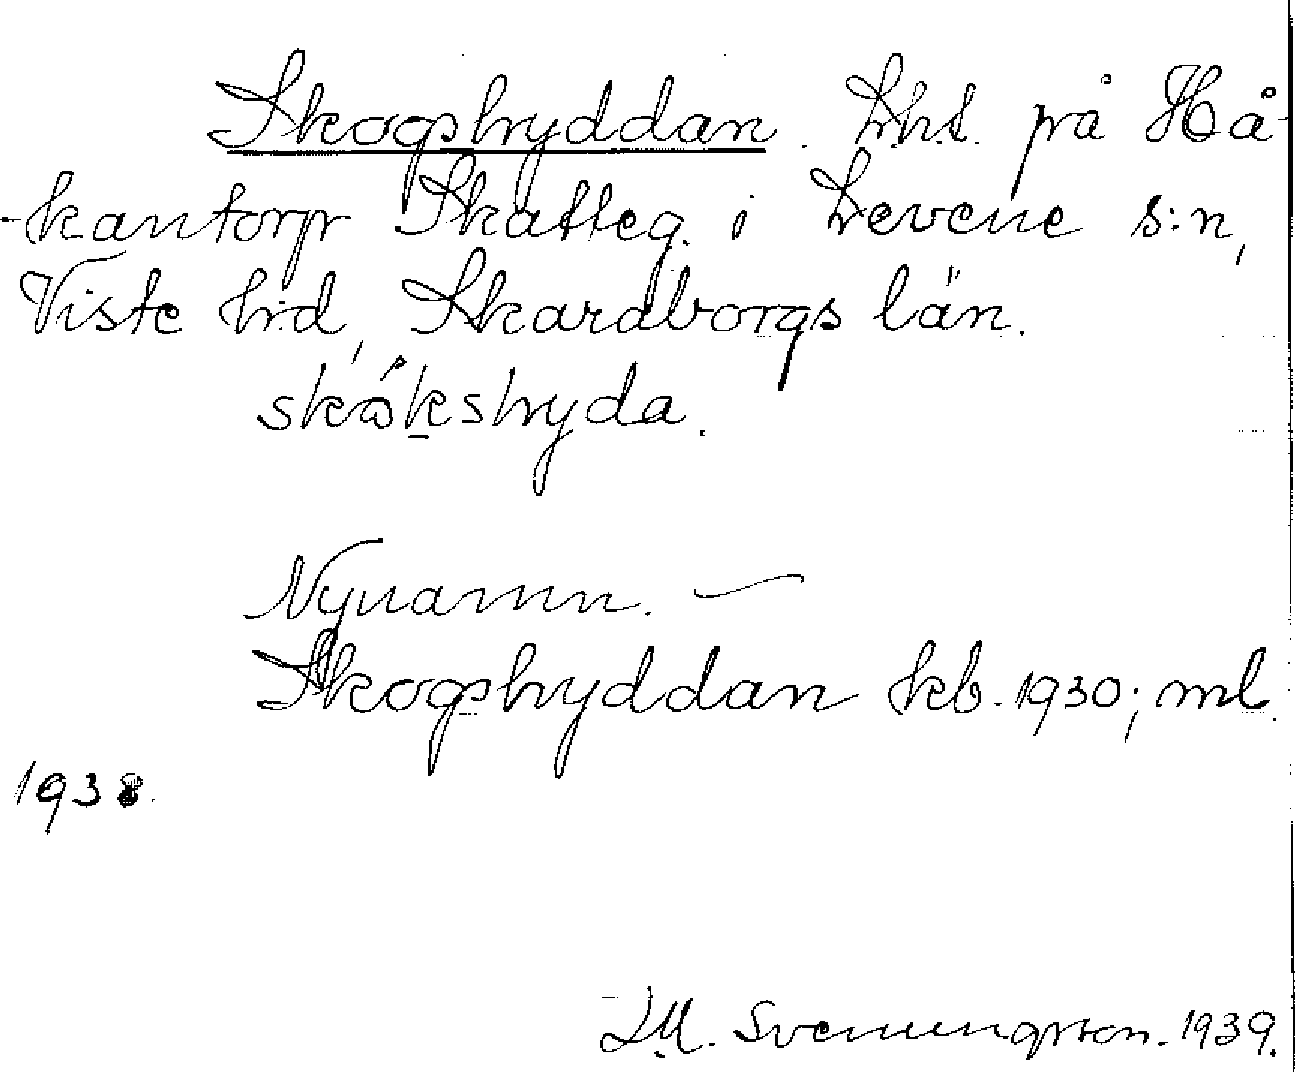 Skogshyddan. Lht. på Hå-
-kantorp Skatteg. i Levene s:n,
Viste h:d, Skaraborgs län.
skåkshyda.
Nynamn. —
Skogshyddan kb. 1930; ml.
1938.
M. Svenungsson. 1939.